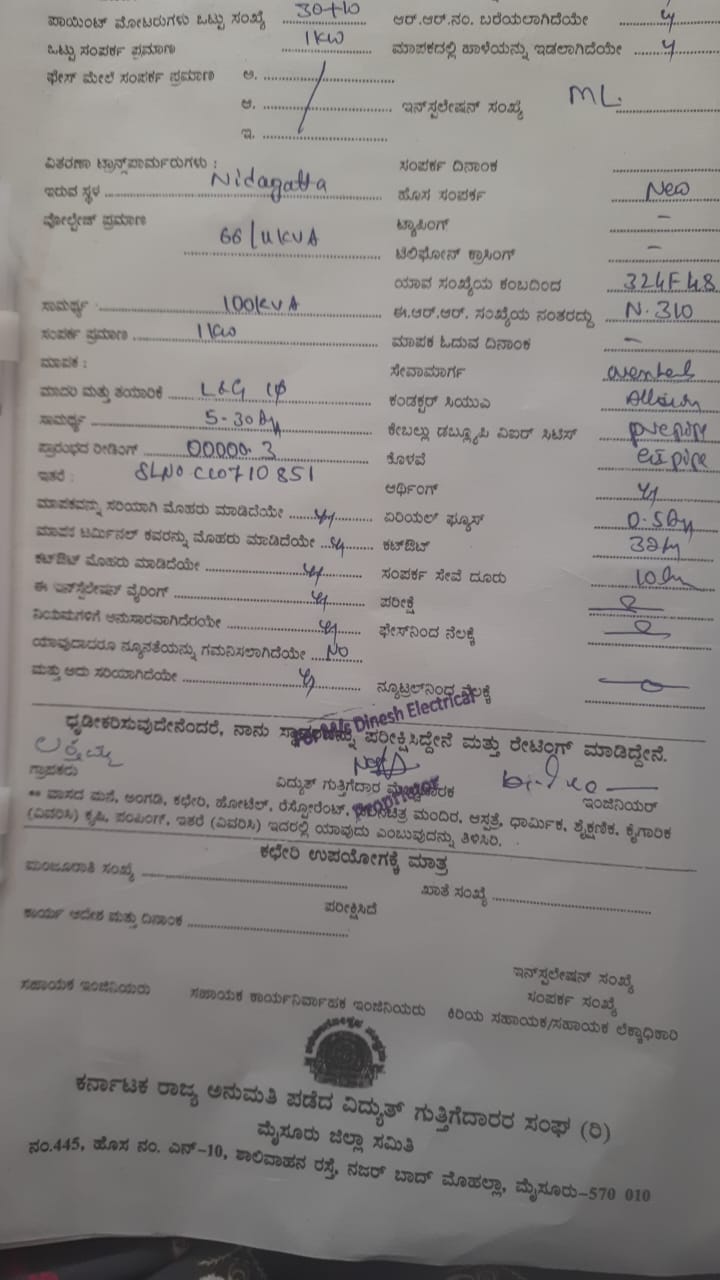 ಪಾಯಿಂಟ್ ಮೋಟರುಗಳು ಒಟ್ಟು ಸಂಖ್ಯೆ 30+10 ಆರ್.ಆರ್.ನಂ. ಬರೆಯಲಾಗಿದೆಯೇ
ಒಟ್ಟು ಸಂಪರ್ಕ ಪ್ರಮಾಣ 1KW ಮಾಪಕದಲ್ಲಿ ಹಾಳೆಯನ್ನು ಇಡಲಾಗಿದೆಯೇ
ಫೇಸ್ ಮೇಲೆ ಸಂಪರ್ಕ ಪ್ರಮಾಣ ಅ.
ಆ. ಇನ್‌ಸ್ಟಲೇಷನ್ ಸಂಖ್ಯೆ ML
ಇ.
ವಿತರಣಾ ಟ್ರಾನ್ಸ್‌ಪಾರ್ಮರುಗಳು : ಸಂಪರ್ಕ ದಿನಾಂಕ
ಇರುವ ಸ್ಥಳ Nidagatta ಹೊಸ ಸಂಪರ್ಕ New
ವೋಲ್ಟೇಜ್ ಪ್ರಮಾಣ 66/11KVA ಟ್ಯಾಪಿಂಗ್ –
ಟೆಲಿಫೋನ್ ಕ್ರಾಸಿಂಗ್ –
ಯಾವ ಸಂಖ್ಯೆಯ ಕಂಬದಿಂದ 324F48
ಸಾಮರ್ಥ್ಯ 100KVA ಈ.ಆರ್.ಆರ್. ಸಂಖ್ಯೆಯ ನಂತರದ್ದು N.310
ಸಂಪರ್ಕ ಪ್ರಮಾಣ 1KW ಮಾಪಕ ಓದುವ ದಿನಾಂಕ –
ಮಾಪಕ : ಸೇವಾಮಾರ್ಗ
ಮಾದರಿ ಮತ್ತು ತಯಾರಿಕೆ L&G 1φ ಕಂಡಕ್ಟರ್ ಸಿಯುಎ
ಸಾಮರ್ಥ್ಯ 5-30 ಕೇಬಲ್ಲು ಡಬ್ಲ್ಯೂಪಿ ವಿಐರ್ ಸಿಟಿಸ್
ಪ್ರಾರಂಭದ ರೀಡಿಂಗ್ 00000.3 ಕೊಳವೆ
ಇತರೆ : SLNO CC0710851 ಅರ್ಥಿಂಗ್
ಮಾಪಕವನ್ನು ಸರಿಯಾಗಿ ಮೊಹರು ಮಾಡಿದೆಯೇ ಏರಿಯಲ್ ಫ್ಯೂಸ್
ಮಾಪಕ ಟರ್ಮಿನಲ್ ಕವರನ್ನು ಮೊಹರು ಮಾಡಿದೆಯೇ ಕಟ್‌ಔಟ್
ಕಟ್‌ಔಟ್ ಮೊಹರು ಮಾಡಿದೆಯೇ ಸಂಪರ್ಕ ಸೇವೆ ದೂರು
ಈ ಇನ್‌ಸ್ಟಲೆಷನ್ ವೈರಿಂಗ್ ಪರೀಕ್ಷೆ
ನಿಯಮಗಳಿಗೆ ಅನುಸಾರವಾಗಿದೆರಯೇ ಫೇಸ್‌ನಿಂದ ನೆಲಕ್ಕೆ
ಯಾವುದಾದರೂ ನ್ಯೂನತೆಯನ್ನು ಗಮನಿಸಲಾಗಿದೆಯೇ NO
ಮತ್ತು ಅದು ಸರಿಯಾಗಿದೆಯೇ ನ್ಯೂಟ್ರಲ್‌ನಿಂದ ನೆಲಕ್ಕೆ
ಧೃಡೀಕರಿಸುವುದೇನೆಂದರೆ, ನಾನು ಪರೀಕ್ಷಿಸಿದ್ದೇನೆ ಮತ್ತು ರೇಟಿಂಗ್ ಮಾಡಿದ್ದೇನೆ.
For M/s Dinesh Electrical
ಗ್ರಾಹಕರು ವಿದ್ಯುತ್ ಗುತ್ತಿಗೆದಾರ ಇಂಜಿನಿಯರ್
Proprietor
** ವಾಸದ ಮನೆ, ಅಂಗಡಿ, ಕಛೇರಿ, ಹೋಟೆಲ್, ರೆಸ್ಟೋರೆಂಟ್, ಚಲನಚಿತ್ರ ಮಂದಿರ, ಆಸ್ಪತ್ರೆ, ಧಾರ್ಮಿಕ, ಶೈಕ್ಷಣಿಕ, ಕೈಗಾರಿಕ
(ವಿವರಿಸಿ) ಕೃಷಿ, ಪಂಪಿಂಗ್, ಇತರೆ (ವಿವರಿಸಿ) ಇದರಲ್ಲಿ ಯಾವುದು ಎಂಬುವುದನ್ನು ತಿಳಿಸಿರಿ.
ಕಛೇರಿ ಉಪಯೋಗಕ್ಕೆ ಮಾತ್ರ
ಮಂಜೂರಾತಿ ಸಂಖ್ಯೆ ಖಾತೆ ಸಂಖ್ಯೆ
ಪರೀಕ್ಷಿಸಿದೆ
ಕಾರ್ಯ ಆದೇಶ ಮತ್ತು ದಿನಾಂಕ
ಇನ್‌ಸ್ಟಲೇಷನ್ ಸಂಖ್ಯೆ
ಸಂಪರ್ಕ ಸಂಖ್ಯೆ
ಸಹಾಯಕ ಇಂಜಿನಿಯರು ಸಹಾಯಕ ಕಾರ್ಯನಿರ್ವಾಹಕ ಇಂಜಿನಿಯರು ಕಿರಿಯ ಸಹಾಯಕ/ಸಹಾಯಕ ಲೆಕ್ಕಾಧಿಕಾರಿ
ಕರ್ನಾಟಕ ರಾಜ್ಯ ಅನುಮತಿ ಪಡೆದ ವಿದ್ಯುತ್ ಗುತ್ತಿಗೆದಾರರ ಸಂಘ (ರಿ)
ಮೈಸೂರು ಜಿಲ್ಲಾ ಸಮಿತಿ
ನಂ.445, ಹೊಸ ನಂ. ಎನ್-10, ಶಾಲಿವಾಹನ ರಸ್ತೆ, ನಜರ್ ಬಾದ್ ಮೊಹಲ್ಲಾ, ಮೈಸೂರು-570 010